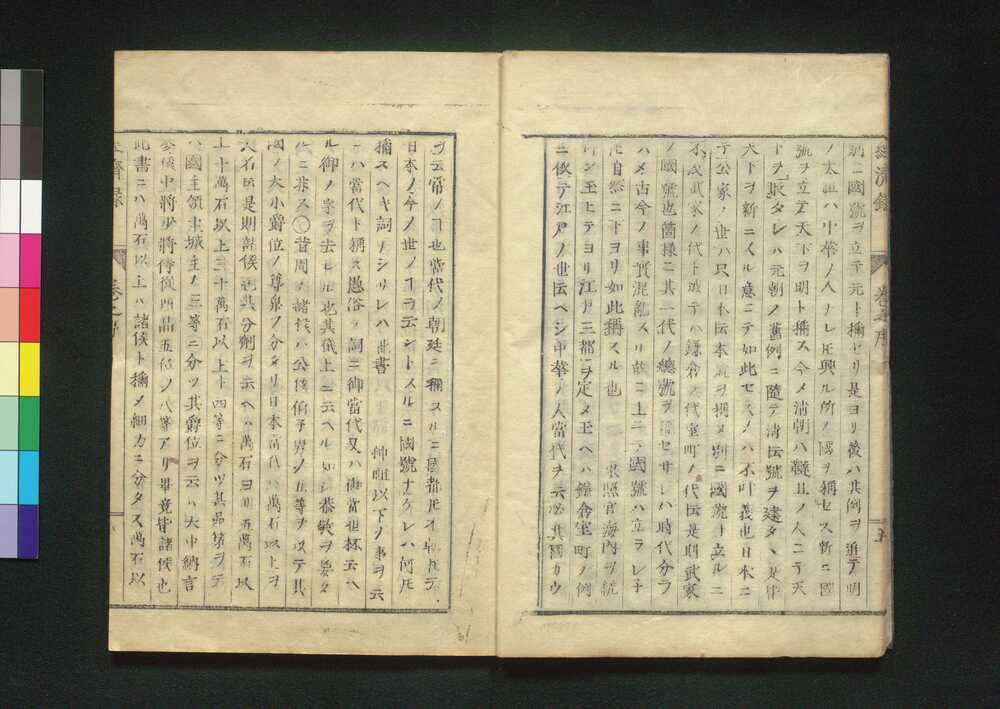 別ニ國號ヲ立テ元ト稱セリ是ヨリ後ハ其例ヲ追テ明
ノ太祖ハ中華ノ人ナレ𪜈興ル所ノ國ヲ稱セス新ニ國
號ヲ立テ天下ヲ明ト稱ス今メ清朝ハ韃且ノ人ニテ天
下ヲ取タレハ元朝ノ舊例ニ隨テ清ト云號ヲ建タ是
天下ヲ新ニスル意ニテ如此セスメハ不叶義也日本ニ
公家ノ世ハ只日本ト云本氣ヲ稱メ別ニ國號ヲ立ルニ
不及武家ノ代ト成テハ鎌倉ノ代室町ノ代ト云是則武家
ノ國號也箇樣ニ其一代ノ總號ヲ セサレハ時代分ラ
ハメ古今ノ事實混亂スル故ニ上ニテ國號ハ立ラレ子
𪜈自然ニ下ヨリ如此稱スル也 東照宮海内ヲ統
シ玉ヒテヨリ江戸ニ三都ヲ定メ玉ヘハ鎌倉室町ノ例
ニ依テ江戸ノ世ト云ヘシ中華ノ人當代ヲ云必其國カウ
經濟錄 卷之序 五
ヲ云常ノ也當代ノ朝廷ニ稱スルニ國都𪜈イ朝𪜈云
日本ノ今ノ世ノヿヲ云ントスルニ國號ナケレハ何𪜈
稱スヘキ詞ナシサレハ此書 神祖以下ノ事ヲ云
ハ當代ト稱ス愚俗ノ詞ニ御當代又ハ御當世杯云ヘ
ル御ノ字ヲ去レル也其儀上ニ云ヘル如シ恭敬ヲ要タ
ルニ非ス○昔周ノ諸侯ハ公侯伯子男ノ五等ヲ以テ其
國ノ大小爵位ノ尊卑ノ分タリ日本當代ハ萬石以上ヲ
大名𪜈是則諸侯 其分劑ヲ云ヘハ萬石ヨリ五萬石以
上十萬石以上三十萬石以上ト四等ニ分ツ其品第ヲ云
ハ國主領主城主ノ三等ニ分ツ其爵位ヲ云ハ大中納言
參儀中將少將侍從四品五位ノ八等アリ畢竟皆諸侯也
此書ニハ萬石以上ハ諸侯ト稱メ細カニ分タス萬石以
經濟錄 卷之序